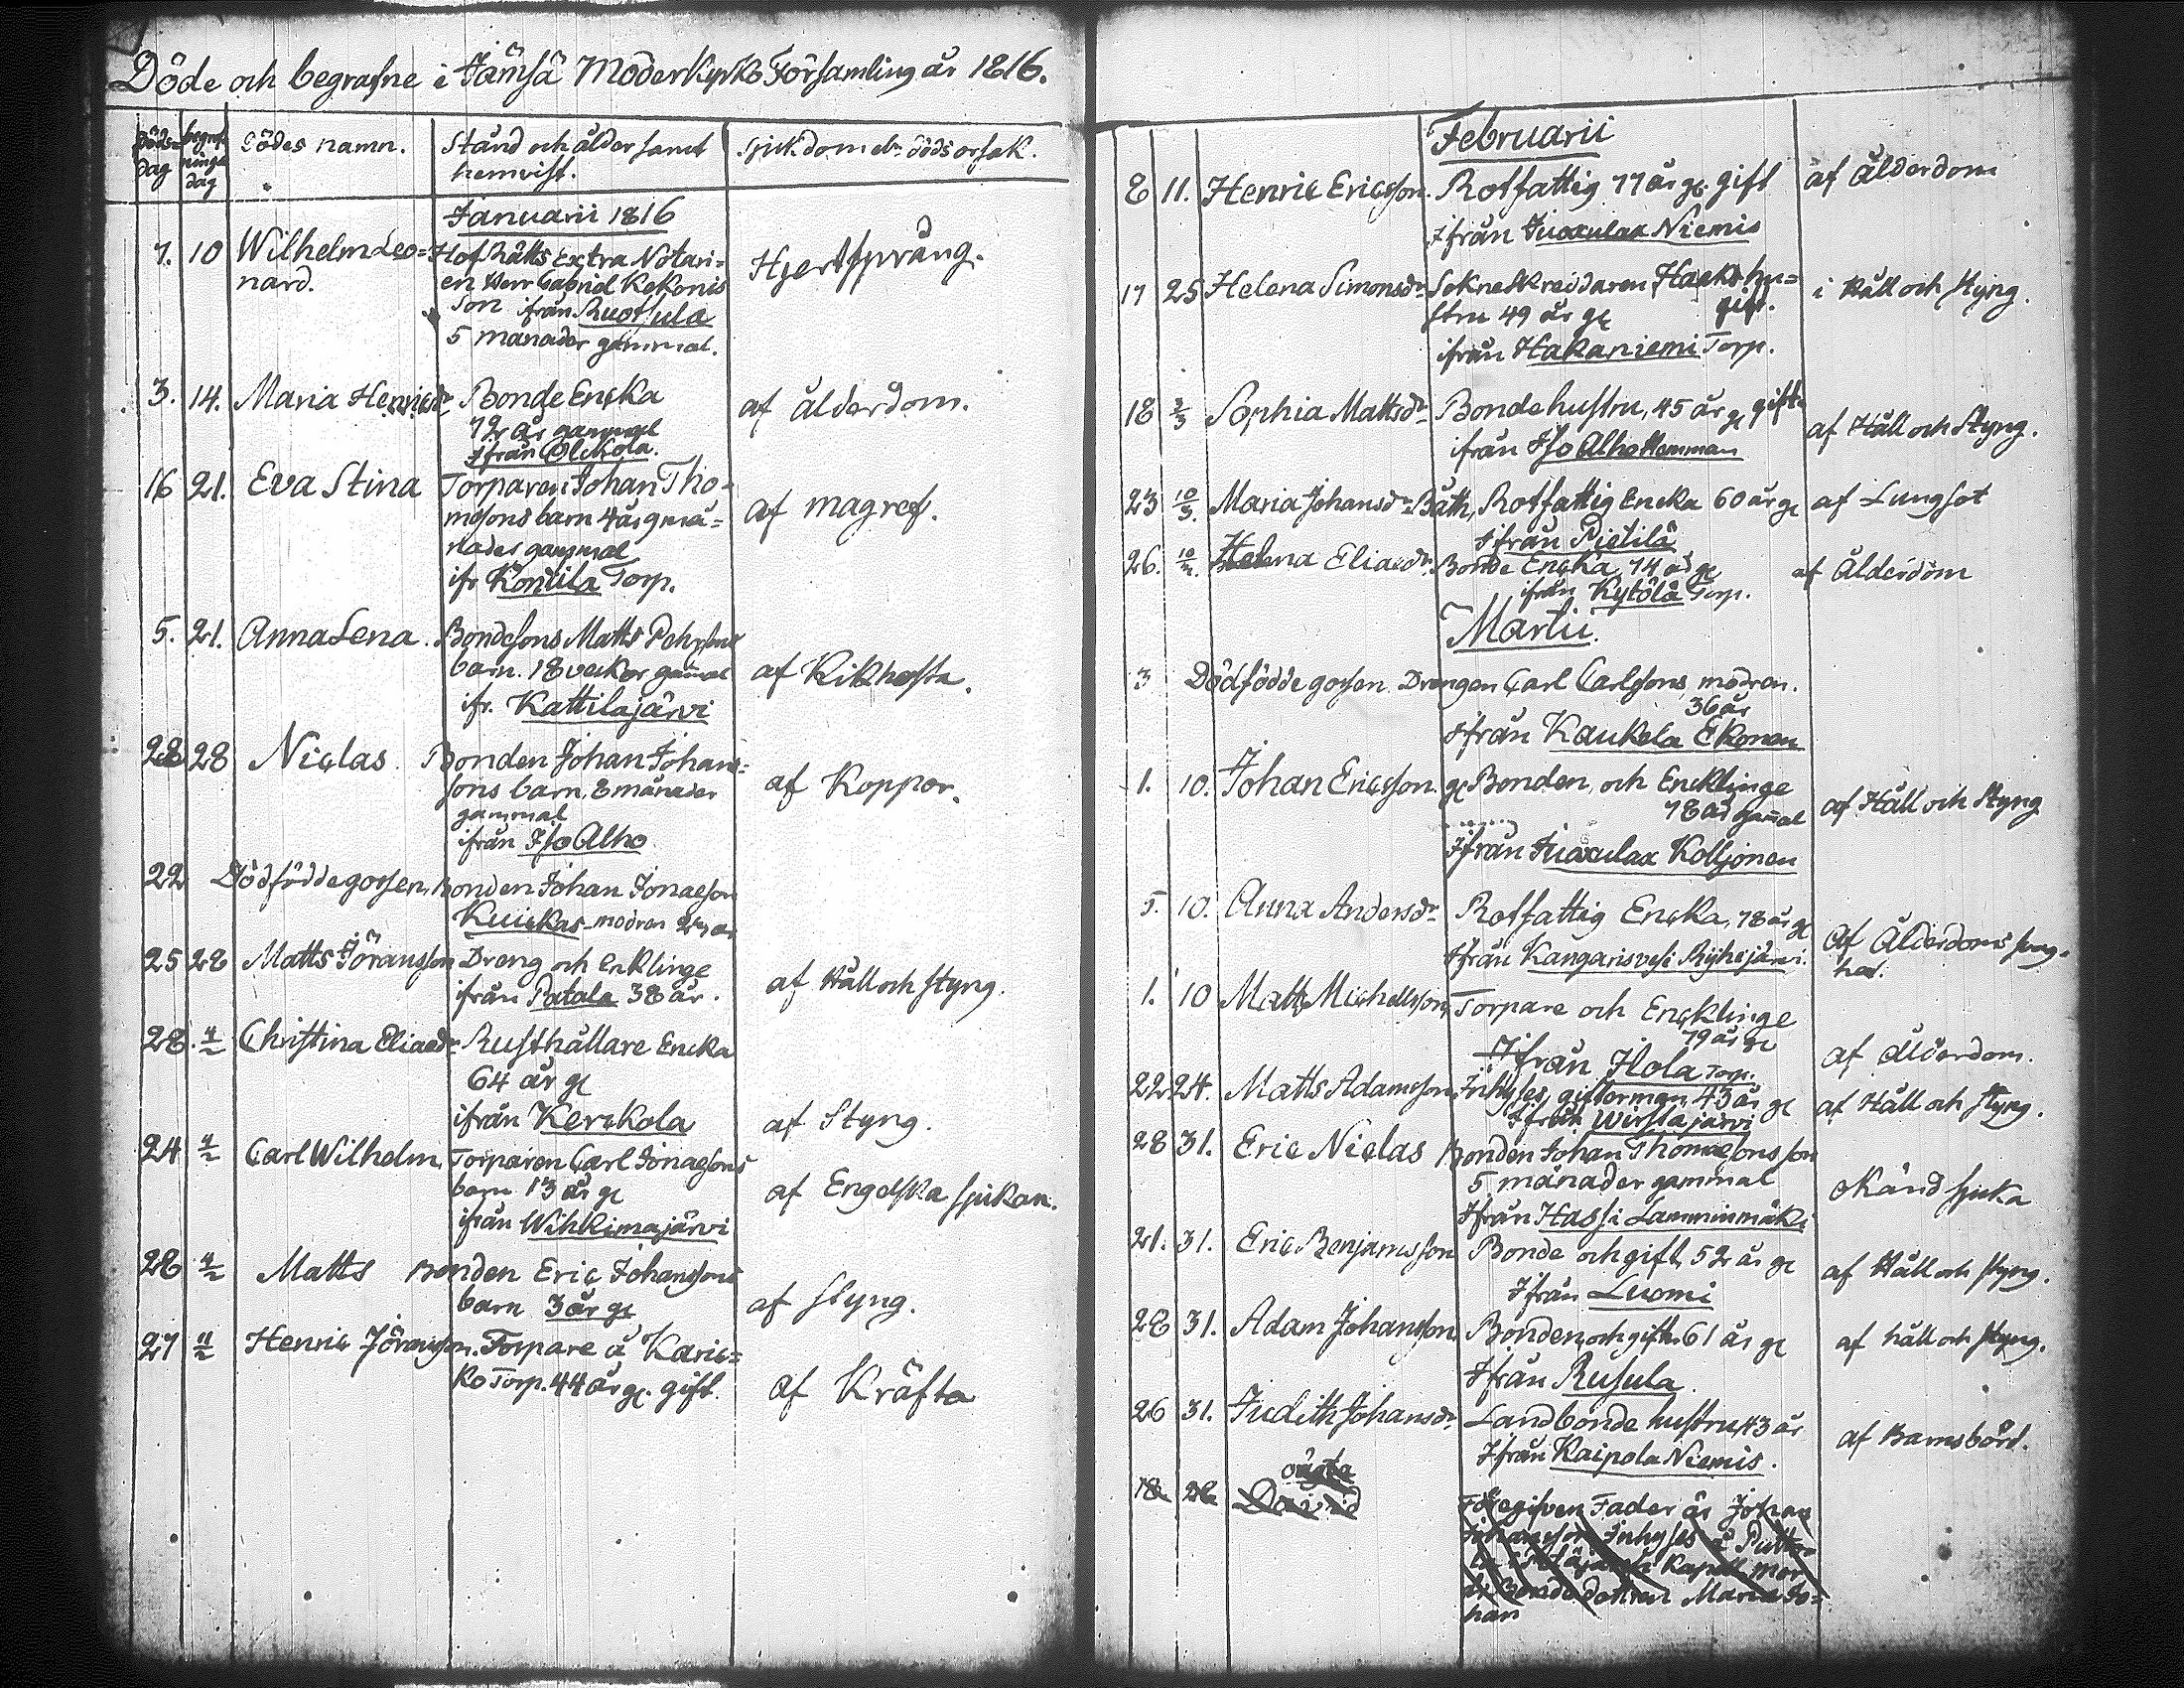 Döde och begrafne i Jämsä Moderkyrko Församling år 1816.
Döds=
dag
begraf
nings
dag
Dödes namn.
Stånd och ålder samt
hemvist.
Sjukdom elr dödsorsak.
Januarii 1816
7. 10 Wilhelm Leo= Hof Rätts Extra Notari= Hjertsprång.
nard. en Herr Gabriel Kekonis
Son ifrån Ruotsula
5 månader gammal.
3. 14. Maria Henricsdr Bonde Encka af ålderdom.
72 år gammal
Ifrån Olckola.
16 21. Eva Stina Torparen Johan Tho= af magref.
masons barn 4 år 9 må=
nades gammal
ifr Kontila Torp.
5. 21. Anna Lena. Bondesons Matts Pehrsons
barn. 18 veckor gammal af Kikhosta.
ifr. Kattilajärvi
28 28 Niclas. Bonden Johan Johans=
sons barn, 8 månader af Koppor.
gammal
ifrån Iso Alho
22 Dödfödde gossen, Bonden Johan Jonaeson
Kuickas modren 27 år
25 28 Matts Jöransson Dreng och Enklinge
ifrån Patala 38 år. af Håll och styng.
28. 4/2 Christina Eliaedr Rusthållare Encka
64 år gl
ifrån Kerckola af Styng.
24 4/2 Carl Wilhelm, Torparen Carl Jonaesons
barn 13 år gl af Engelska sjukan.
ifrån Wihkimajärvi
28 4/2 Matts Bonden Eric Johanssons
barn 3 år gl af styng.
27 11/2 Henric Jöransson. Torpare å Karic=
ko Torp. 44 år gl. gift. af Kräfta
Februarii
8 11. Henric Ericsson. Rotfattig 77 år gl. gift af ålderdom
Ifrån Juoxulax Niemis
17 25 Helena Simonsdr Sokneskreddaren Haaks hu= i Håll och styng.
stru 49 år gl gift.
ifrån Hakaniemi Torp.
18 3/3 Sophia Mattsdr Bondehustru, 45 år gl gift. af Håll och Styng.
ifrån Iso Alho Hemman
23 10/3. Maria Johansdr Bäth, Rotfattig Encka 60 år gl af Lungsot
Ifrån Pietilä
26. 10/ Helena Eliaedr. Bonde Encka, 74 år gl af Ålderdom
ifrån Kytölä Torp.
Martii.
3 Dödfödde gossen Drengen Carl Carlssons, modren.
36 år
Ifrån Kaukela Ekonen
1. 10. Johan Ericsson. gl Bonden, och Encklinge af Håll och Styng
78 år gammal
Ifrån Juoxulax Kolljonen
5. 10. Anna Andersdr Rotfattig Encka, 78 år gl af Ålderdoms svag=
Ifrån Kangarisvesi Rijhijärvi. het.
1. 10 Matts Michellsson, Torpare och Encklinge
79 år gl af ålderdom.
Ifrån Ilola Torp.
22 24. Matts Adamsson, Inhyses, giftorman 43 år gl af Håll och styng.
Ifrån Wirstajärvi
28 31. Eric Niclas Bonden Johan Thomaesons son
5 månader gammal okänd sjuka
Ifrån Hassi Lamminmäki
21. 31. Eric Benjamsson Bonde och gift, 52 år gl af Håll och styng.
Ifrån Luomi
28 31. Adam Johansson Bonden och gift 61 år gl af håll och styng.
Ifrån Rusula.
26 31. Judith Johansdr Landbonde hustru, 43 år af Barnsbörd.
Ifrån Kaipola Niemis.
oägta
18. 28 David Föregifven Fader är Johan
Johansson Inhyses
Kapell mod
Bondedottren Maria Jo=
han